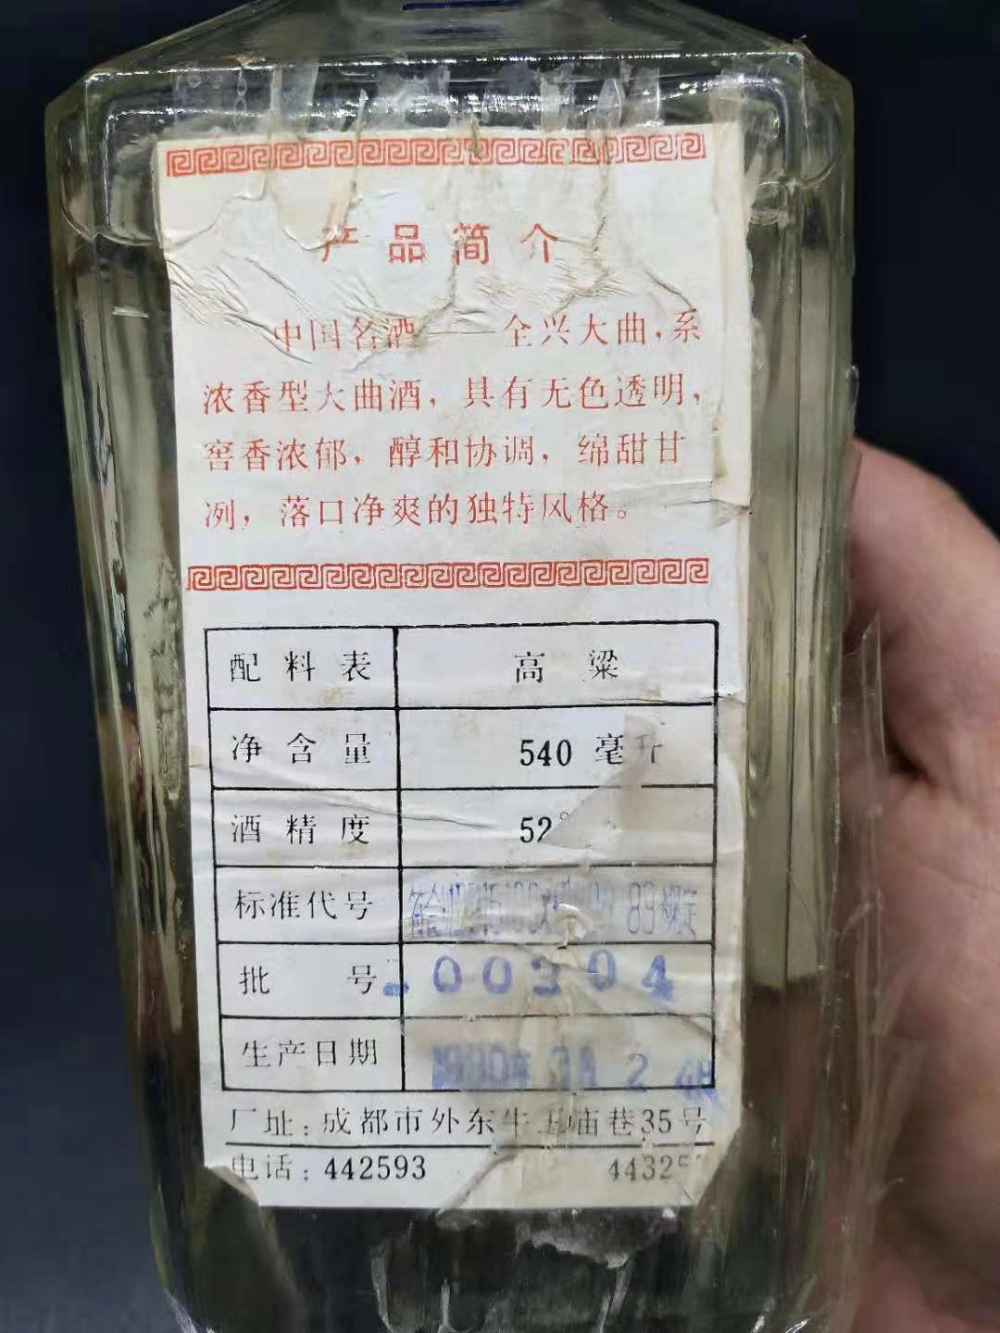 产品简介
中国名酒——全兴大曲，系
浓香型大曲酒，具有无色透明，
窖香浓郁，醇和协调，绵甜甘
冽，落口净爽的独特风格。
配料表 高粱
净含量 540 毫升
酒精度 52°
标准代号 89
批号 00304
生产日期 2
厂址：成都市外东牛王庙巷35号
电话：442593 44325